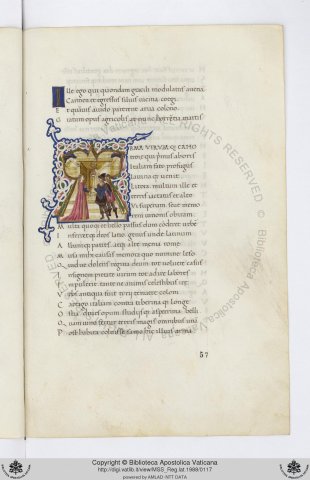 Ille ego qui quondam gracili modulatus auena
Carmen et egressus siluis uicina coegi
Et quamuis auido parerent arua colono
Gratum opus agricolis at nunc horrentia martis
ARMA VIRVMQ CANO
troie qui primus ab oris
Italiam fato profugus
lauina q uenit
Litora multum ille et
terris iactatus et alto
Vi superum seue memo
rem iunonis ob iram
Multa quoq et bello passus dum conderet urbe
Inferret q deos latio genus unde latinum
Albaniq patres atq alte menia rome
Musa mihi causas memora quo numine leso
Quid ue dolens regina deum tot uoluere casus
Insignem pietate uirum tot adire labores
Impulerit tante ne animis celestibus ire
Vrbs antiqua fuit tyrii tenuere coloni
Cartago italiam contra tiberina q longe
Ostia diues opum studiis q asperrima belli
Quam iuno fertur terris magis omnibus unam
Post habita coluisse samo hic illius arma
57
Copyright © Biblioteca Apostolica Vaticana
http://digi.vatlib.it/view/MSS_Reg.lat.1988/0117
powered by AMLAD NTT DATA